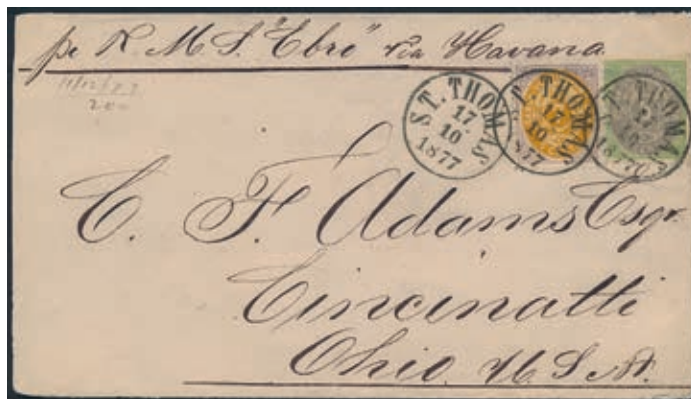 pr R. M. S. "Ebro" via Havana
ST. THOMAS
17
10
1877
ST. THOMAS
17
10
1877
ST. THOMAS
1877
C. F. Adams Esqr.
Cincinatti
Ohio. U.S.A.